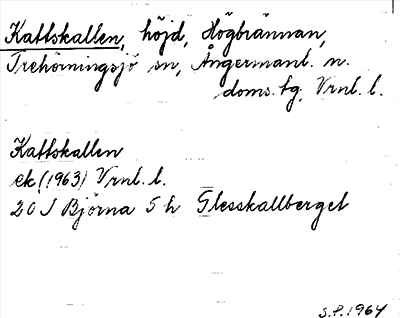 Kattskallen, höjd, Högbrännan,
Trehörningsjö sn, Ångermanl. n.
doms. tg, Vrnl. l.
Kattskallen
ek (1963) Vrnl. l.
20 J Björna 5 h Flesskallberget
S.P. 1964